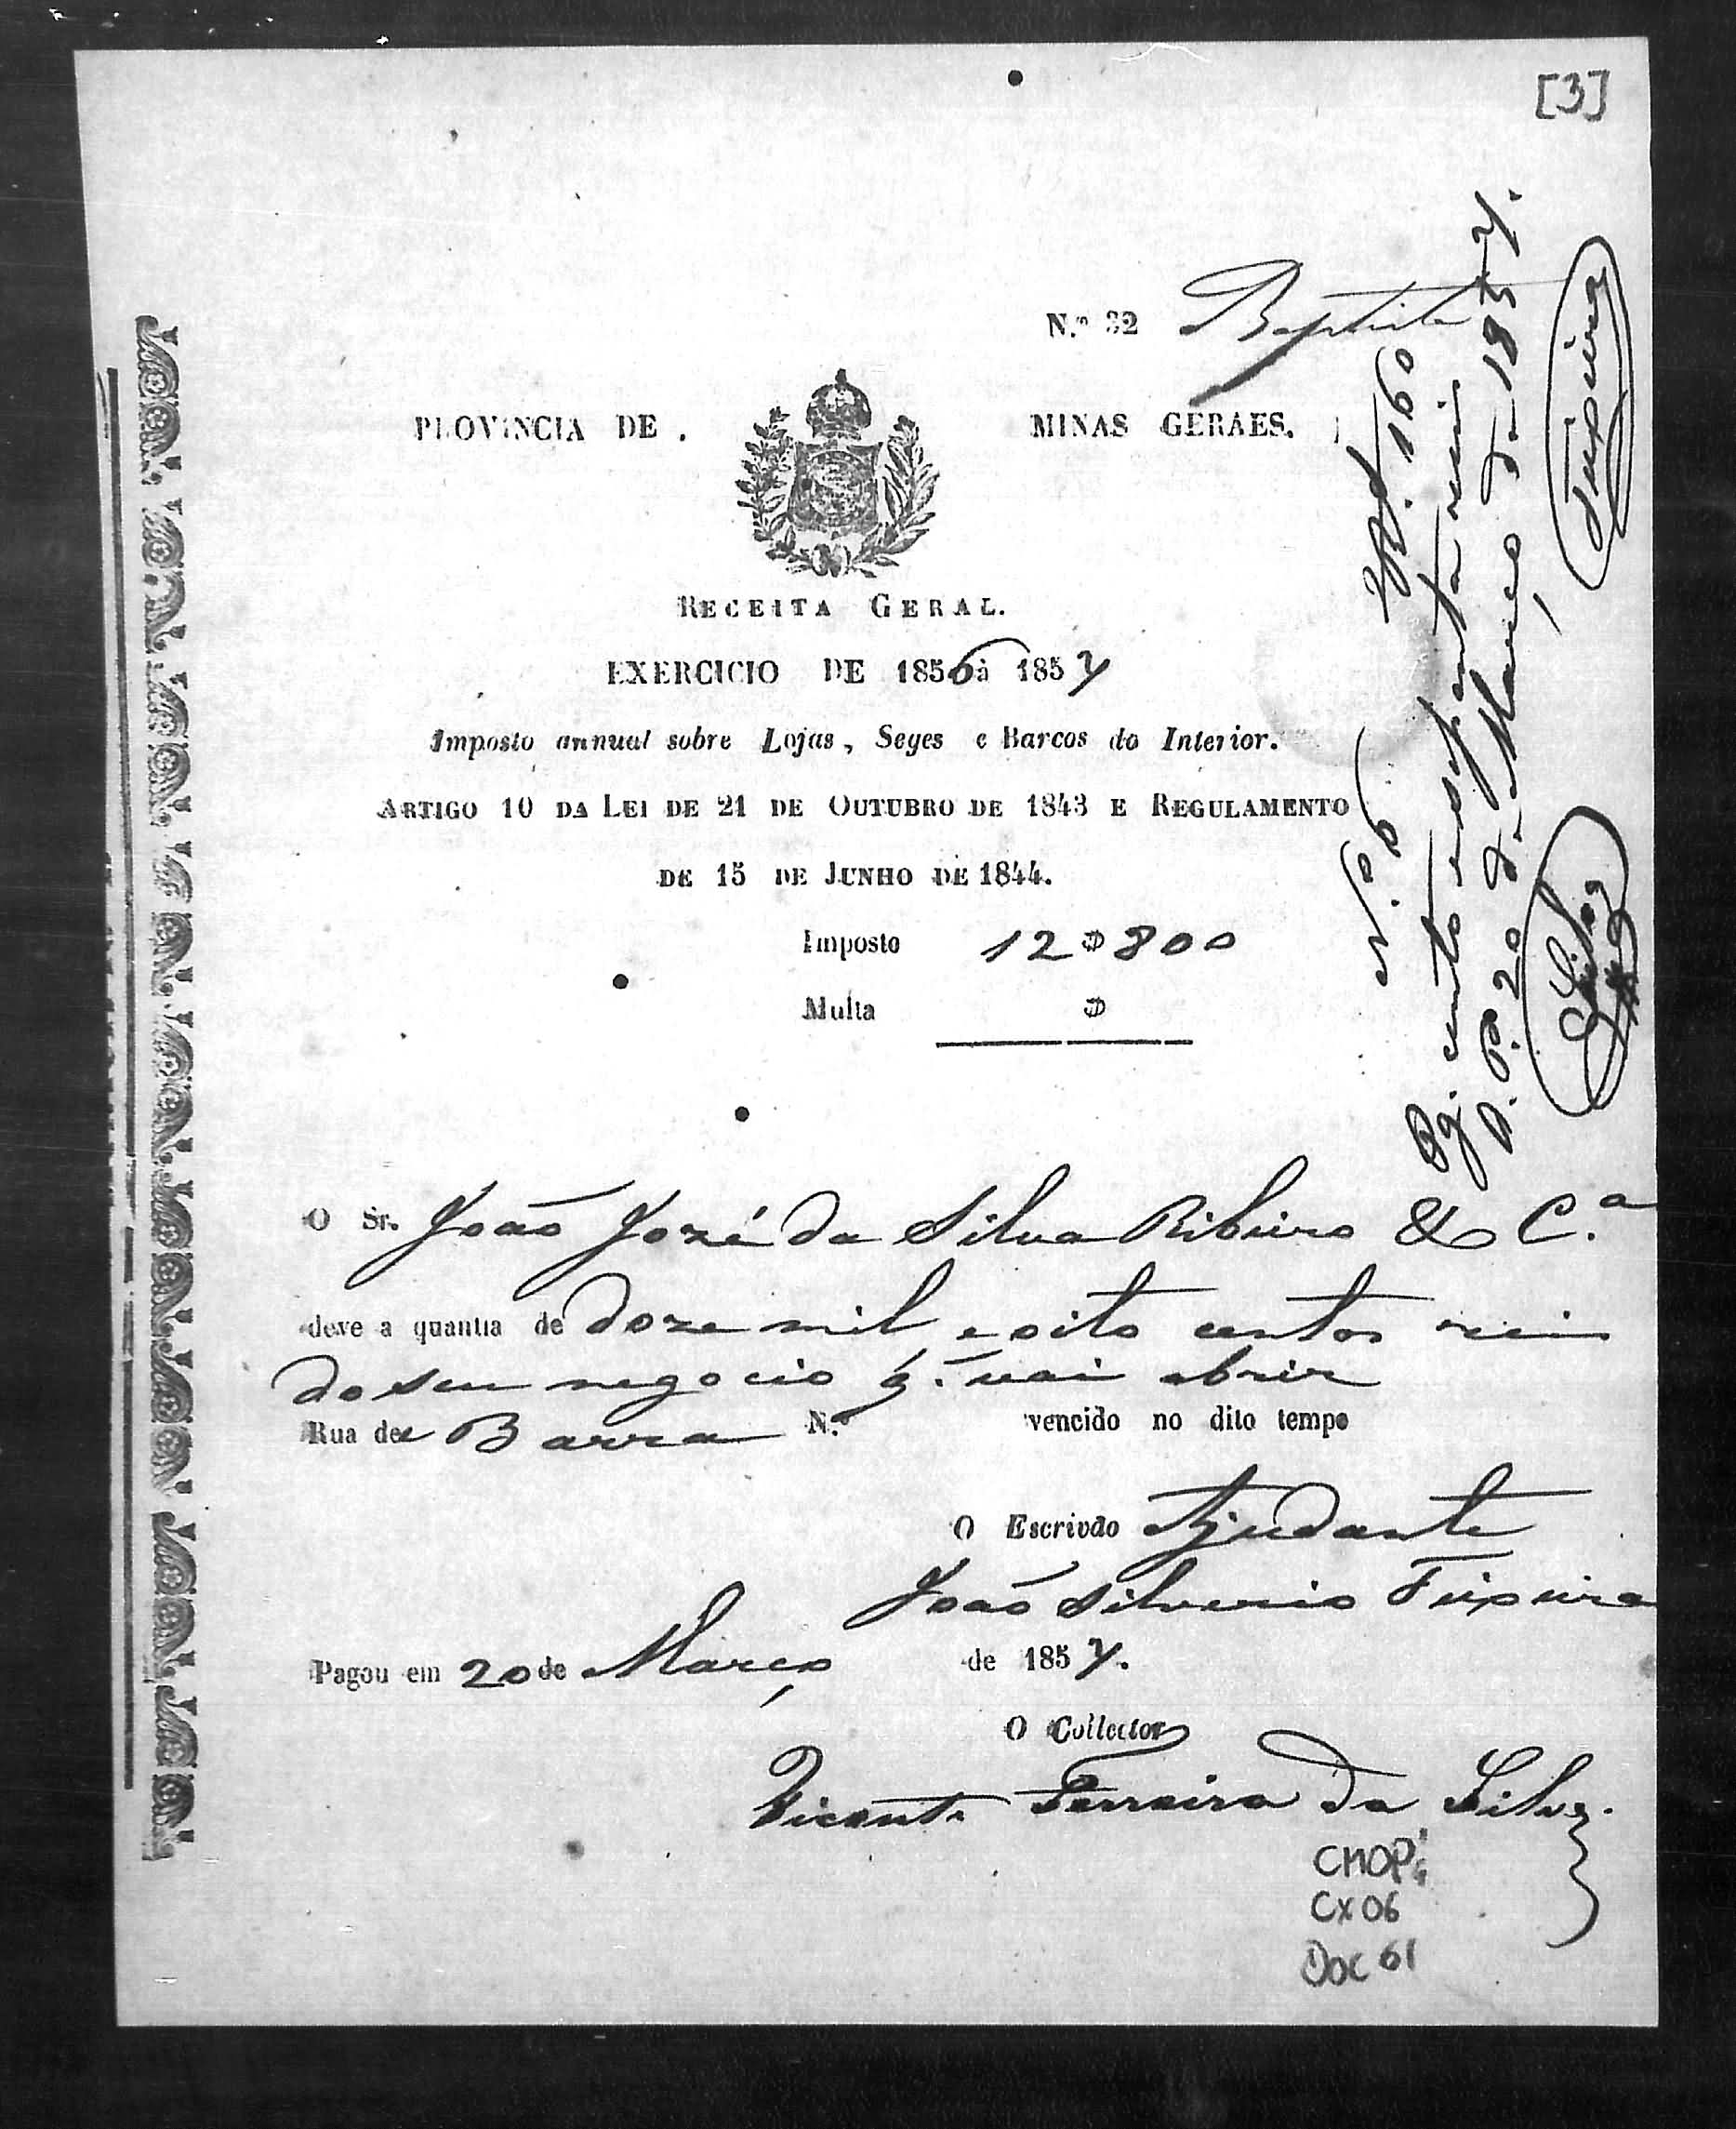 [3]
N.º 32 Baptista
PROVINCIA DE MINAS GERAES.
RECEITA GERAL.
EXERCICIO DE 1856 à 1857
Imposto annual sobre Lojas, Seges e Barcos do Interior.
ARTIGO 10 DA LEI DE 21 DE OUTUBRO DE 1843 E REGULAMENTO
DE 15 DE JUNHO DE 1844.
Imposto 12$800
Multa $
N.º 6 160
Pg. cento e sessenta reis
O. P. 20 de Março de 1857.
Silva Teixeira
O Sr. João Jozé da Silva Ribeiro & C.ª
deve a quantia de doze mil e oito centos reis
do seu negocio q. vai abrir
Rua da Barra N.º vencido no dito tempo
O Escrivão Ajudante
João Silverio Teixeira
Pagou em 20 de Março de 1857.
O Collector
Vicente Ferreira da Silva.
CMOP
Cx 06
Doc 61